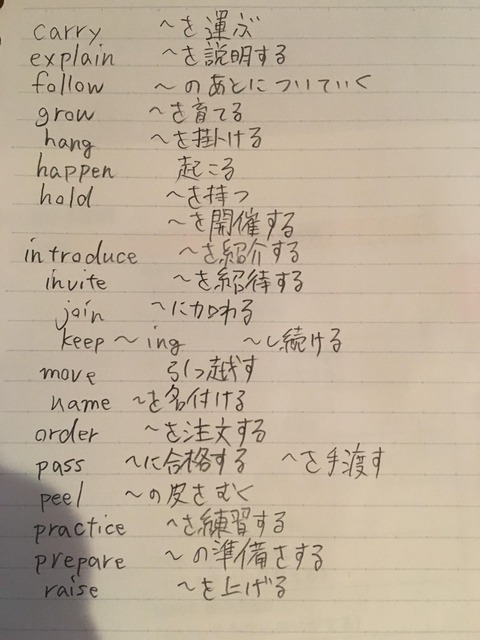 carry ～を運ぶ
explain ～を説明する
follow ～のあとについていく
grow ～を育てる
hang ～を掛ける
happen 起こる
hold ～を持つ
～を開催する
introduce ～を紹介する
invite ～を紹待する
join ～に加わる
keep ～ ing ～し続ける
move 引っ越す
name ～を名付ける
order ～を注文する
pass ～に合格する ～を手渡す
peel ～の皮をむく
practice ～を練習する
prepare ～の準備をする
raise ～を上げる